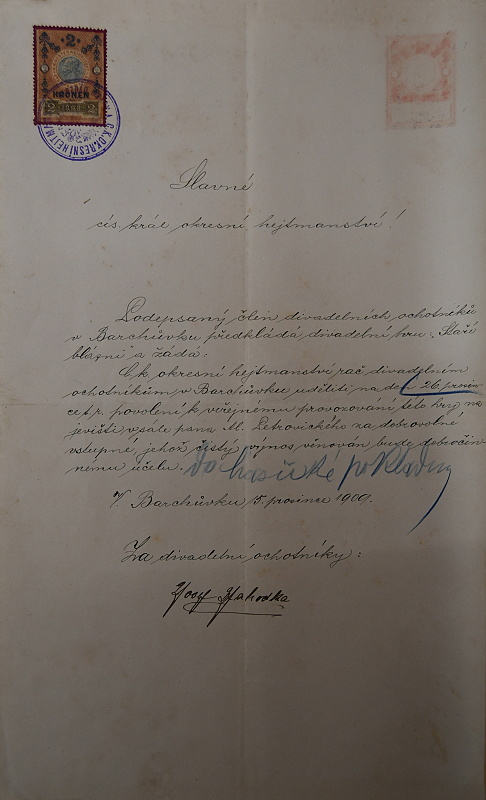 2
KRONEN
2 1898 2
C.K. OKRESNÍ HEJTM
Slavné
cís. král. okresní hejtmanství!
Podepsaný člen divadelních ochotníků
v Barchůvku předkládá divadelní hru: Staří
blázni a žádá:
C.k. okresní hejtmanství rač divadelním
ochotníkům v Barchůvku uděliti na den 26 prosin-
ce t.r. povolení k veřejnému provozování této hry na
jevišti v sále pana Al. Petrovického za dobrovolné
vstupné, jehož čistý výnos věnován bude dobročin-
nému účelu. do hasičské pokladny
V. Barchůvku 15. prosince 1909.
Za divadelní ochotníky:
Josef